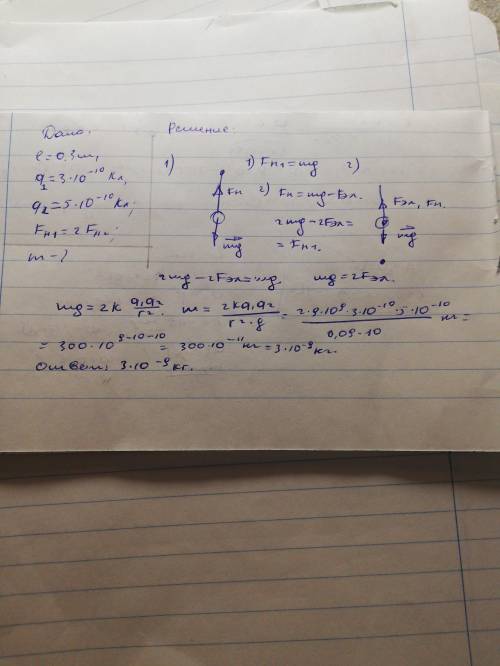 Дано: Решение:
l = 0,3 м,
q₁ = 3·10⁻¹⁰ Кл,
q₂ = 5·10⁻¹⁰ Кл,
Fн₁ = 2Fн₂;
m - ?
1) 1) Fн₁ = mg 2)
Fн 2) Fн = mg - Fэл. Fэл, Fн.
mg 2mg - 2Fэл = mg
= Fн₁.
2mg - 2Fэл = mg. mg = 2Fэл.
mg = 2k q₁q₂/r². m = 2kq₁q₂/r²·g = 2·9·10⁹·3·10⁻¹⁰·5·10⁻¹⁰/0,09·10 кг =
= 300·10⁹⁻¹⁰⁻¹⁰ = 300·10⁻¹¹ кг = 3·10⁻⁹ кг.
Ответ: 3·10⁻⁹ кг.